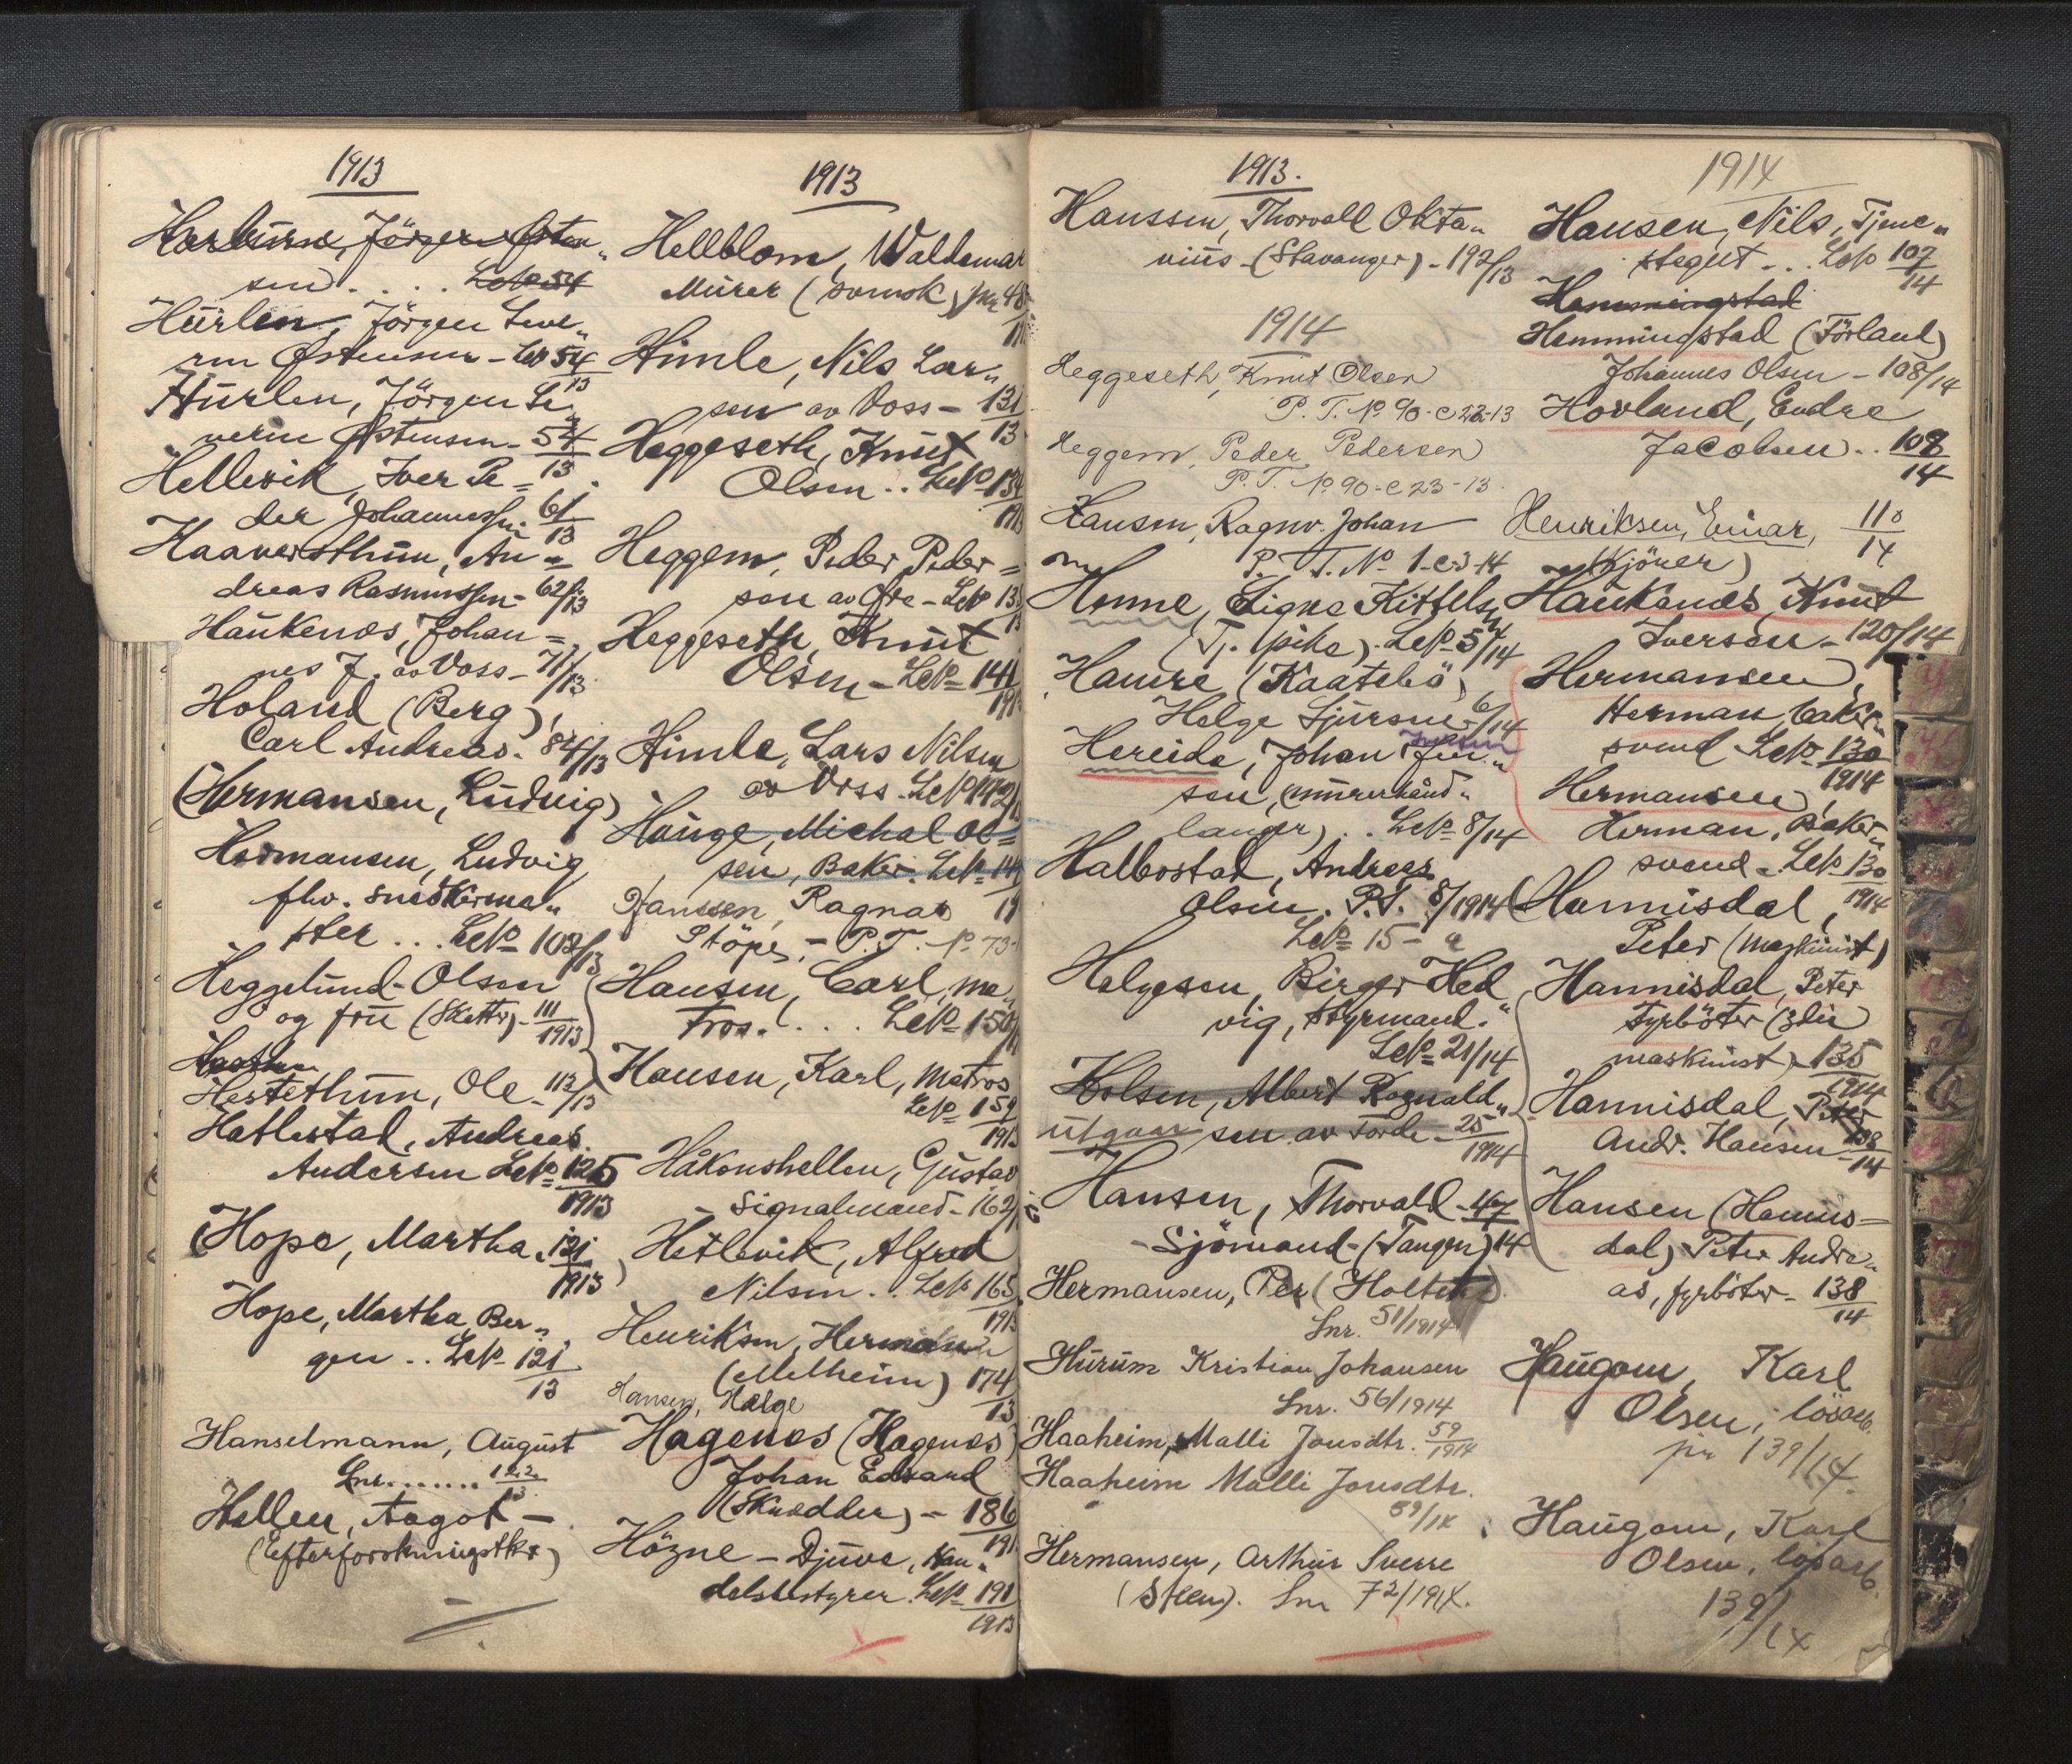 1913
Hurlen, Jörgen Seve„
rin Østensen - Lnr 54
13
Hurlen, Jörgen Se„
verin Østensen - 54
13
Hellevik, Iver Pe=
der Johannessen. 61
13
Haaversthun, An=
dreas Rasmussen - 62/13
Haukenæs, Johan=
nes J. av Voss - 71/13
Holand (Berg),
Carl Andreas. 84/13
(Hermansen, Ludvig)
Hermansen, Ludvig
fhv. snedkerme„
ster ... 102/13
Heggelund-Olsen
og fru - 111
1913
Hestethun, Ole - 112/13
Hatlestad, Andreas
Andersen LNo 125
1913
(Hope, Martha. 121
1913
Hope, Martha, Ber„
gen .. LNo 121
13
Hanselmann, August
Lnr........ 122
13
Hellen, Aagot -
(Efterforskningstkr)
1913
Hellblom, Waldemar
Murer (svensk)
Himle, Nils Lar„
sen av Voss - 131
13
Heggeseth, Knut
Olsen .. LNo 134
Heggem, Peder Peder=
sen av
Heggeseth, Knut
Olsen - LNo 141
Himle, Lars Nilsen
av Voss. LNo 142
Hauge, Michal Ol=
sen, Baker. LNo 14
Hanssen, Ragnar
Stöper - P.T. No 73
Hansen, Carl, ma„
tros. ... LNo 159
Hansen, Karl, matros
LNo 159
1913
Håkonshellen, Gustav
Signalmand - 162
Hetlevik, Alfred
Nilsen .. LNo 165
1913
Henriksen, Hermann
(Melheim) 174
13
Hansen, Helge
Hagenes (Hagenæs)
Johan Edvard
(Skrædder) - 186
191
Högne - Djuve, Han„
delsbestyrer. LNo 191
1913
1913.
Hanssen, Thorvall Okta„
vius - (Stavanger) - 192/13
1914
Heggeseth, Knut Olsen
P. T. No 90 - c 23-13
Heggem, Peder Pedersen
P. T. No 90 - c 23-13.
Hansen, Ragnv. Johan
P. T. No 1-c-3-14
Honne, Signe Kittels„
(Tj. pike). LNo 5/14
Hamre (Kaatebö)
Helge Sjursen - 6/14
Hereide, Johan Jen„
sen, (murerhånd„
langer) .. LNo 8/14
Halbostad, Andreas
Olsen. P.T. 8/1914
LNo 15 - a
Helgesen, Birger Hed„
vig, Styrmand.
LNo 21/14
Holsen, Albert Ragnvald„
utgaar sen av Förde - 25
1914
Hansen, Thorvald - 47
Sjömand - (Tangen) 14
Hermansen, Per (Holtet)
Lnr. 51/1914
Hurum Kristian Johansen
Lnr. 56/1914
Haaheim, Malli Jonsdtr. 59
1914
Haaheim Malli Jonsdtr.
59/14
Hermansen, Arthur Sverre
(Steen). Lnr 72/1914.
1914
Hansen, Nils, Tjene„
stegut ... LNo 107
14
Hemmingstad
Hemmingstad (Förland)
Johannes Olsen - 108/14
Hovland, Endre
Jacobsen .. 108
14
Henriksen, Einar, 110
14
(Kjörer)
Haukanæs, Knut
Iversen - 120/14
Hermansen,
Herman, baker„
svend - LNo 130
1914
Hermansen,
Herman, Baker„
svend - LNo 130
1914
(Hannisdal,
Peter (maskinist)
Hannisdal, Peter
Fyrböter (3die
maskinist) - 135
1914
Hannisdal, Peter
Andr. Hansen - 138
14
Hansen (Hannis=
dal) Peter Andre„
as, fyrböter - 138
14
Haugom, Karl
Olsen, lösarb.
139/14.
Haugom, Karl
Olsen, lösarb.
139/14